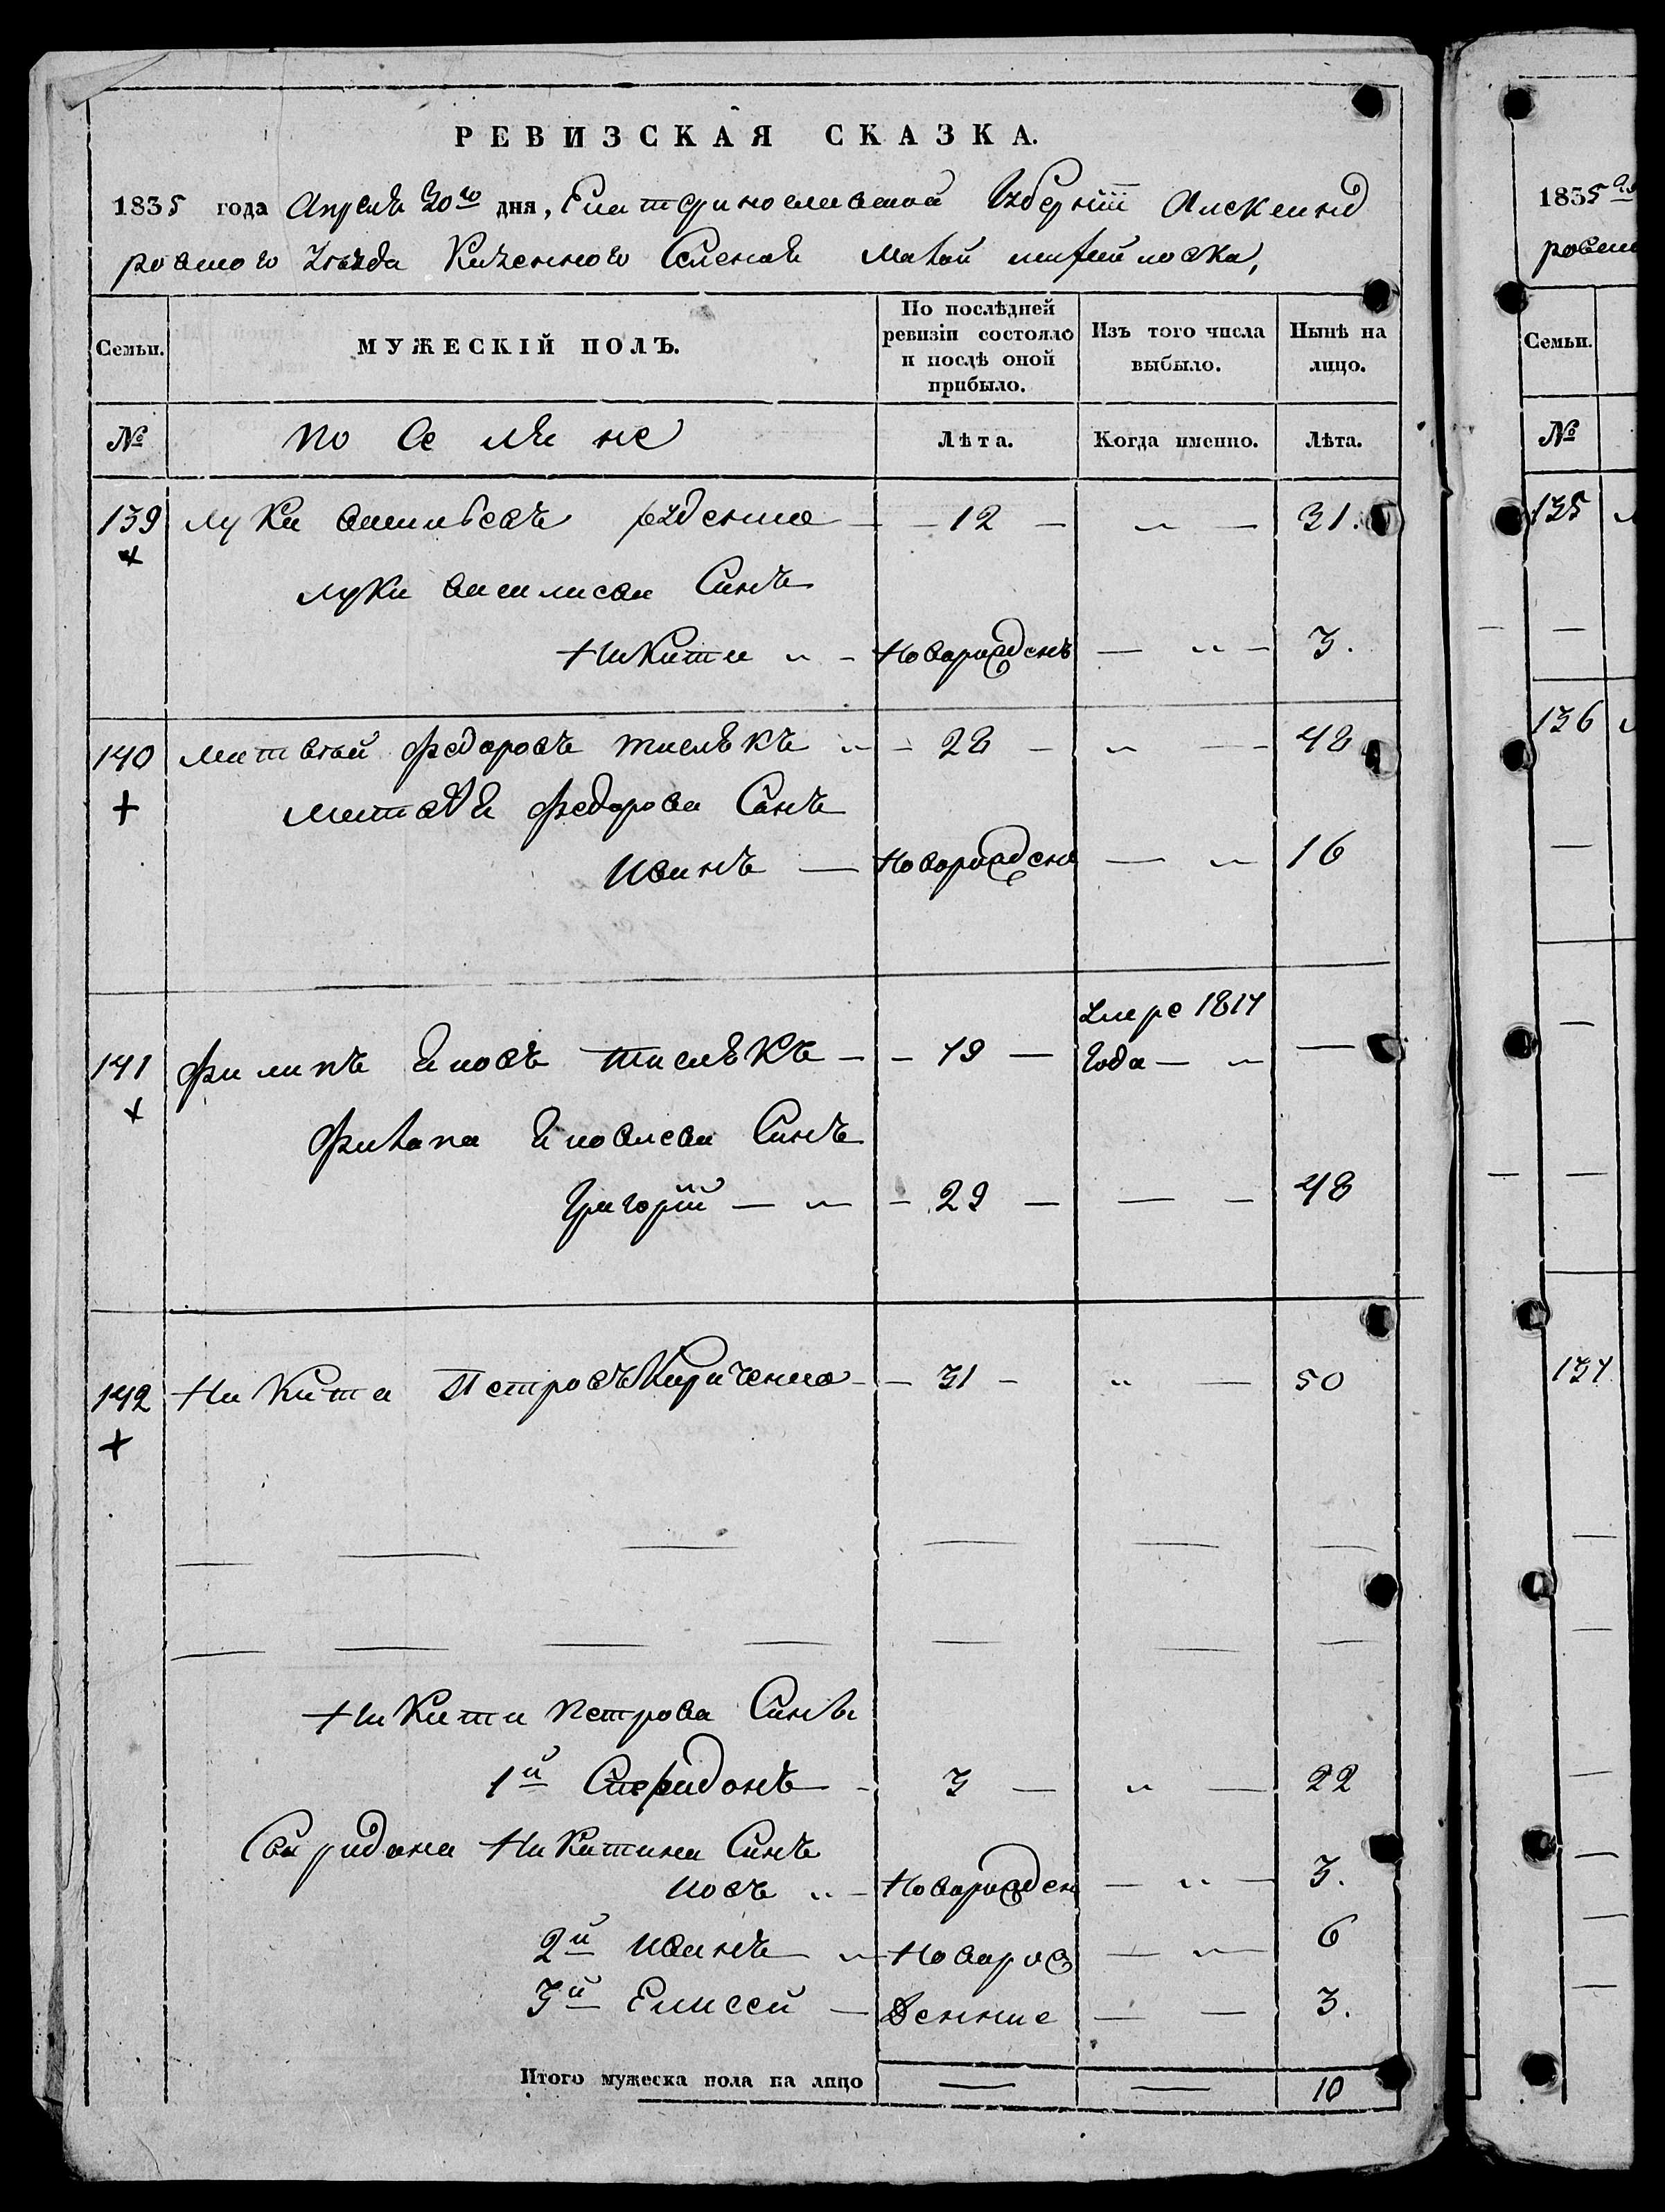 РЕВИЗСКАЯ СКАЗКА.
1835 года Апреля 30го дня, Екатеринославской Губерніи Александ
ровского Уезда Казенного Селения Малой
Семьи. МУЖЕСКІЙ ПОЛЪ. По послѣдней ревизіи состояло и послѣ оной прибыло. Изъ того числа выбыло. Нынѣ на лицо.
№ по се ля не Лѣта. Когда именно. Лѣта.
139 Лука Васильевъ — 12 — „ — 31.
Луки Василиева Синъ
Никита „ — Новорожденъ — „ — 3.
140 Матвѣй Федоровъ „ — 28 — „ — 48
Матвѣя Федорова Синъ
Иванъ — Новорожден — „ 16
141 Филипъ — 79 — Умре 1817 года — „ —
Филипа Синъ
Григорій — „ — 29 — — — 48
142 Никита Петровъ Кириченко — 31 — „ — 50
Никити Петрова Сини
1й Спиридонъ — 3 — „ — 22
Свиридона Никитина Синъ
Иовъ „ — Новорожден — „ — 3.
2й Иванъ „ Новорож — „ — 6
3й Елисей — денние — — 3.
Итого мужеска пола на лицо — — 10
1835
ровск
Семьи.
№
135
136
137